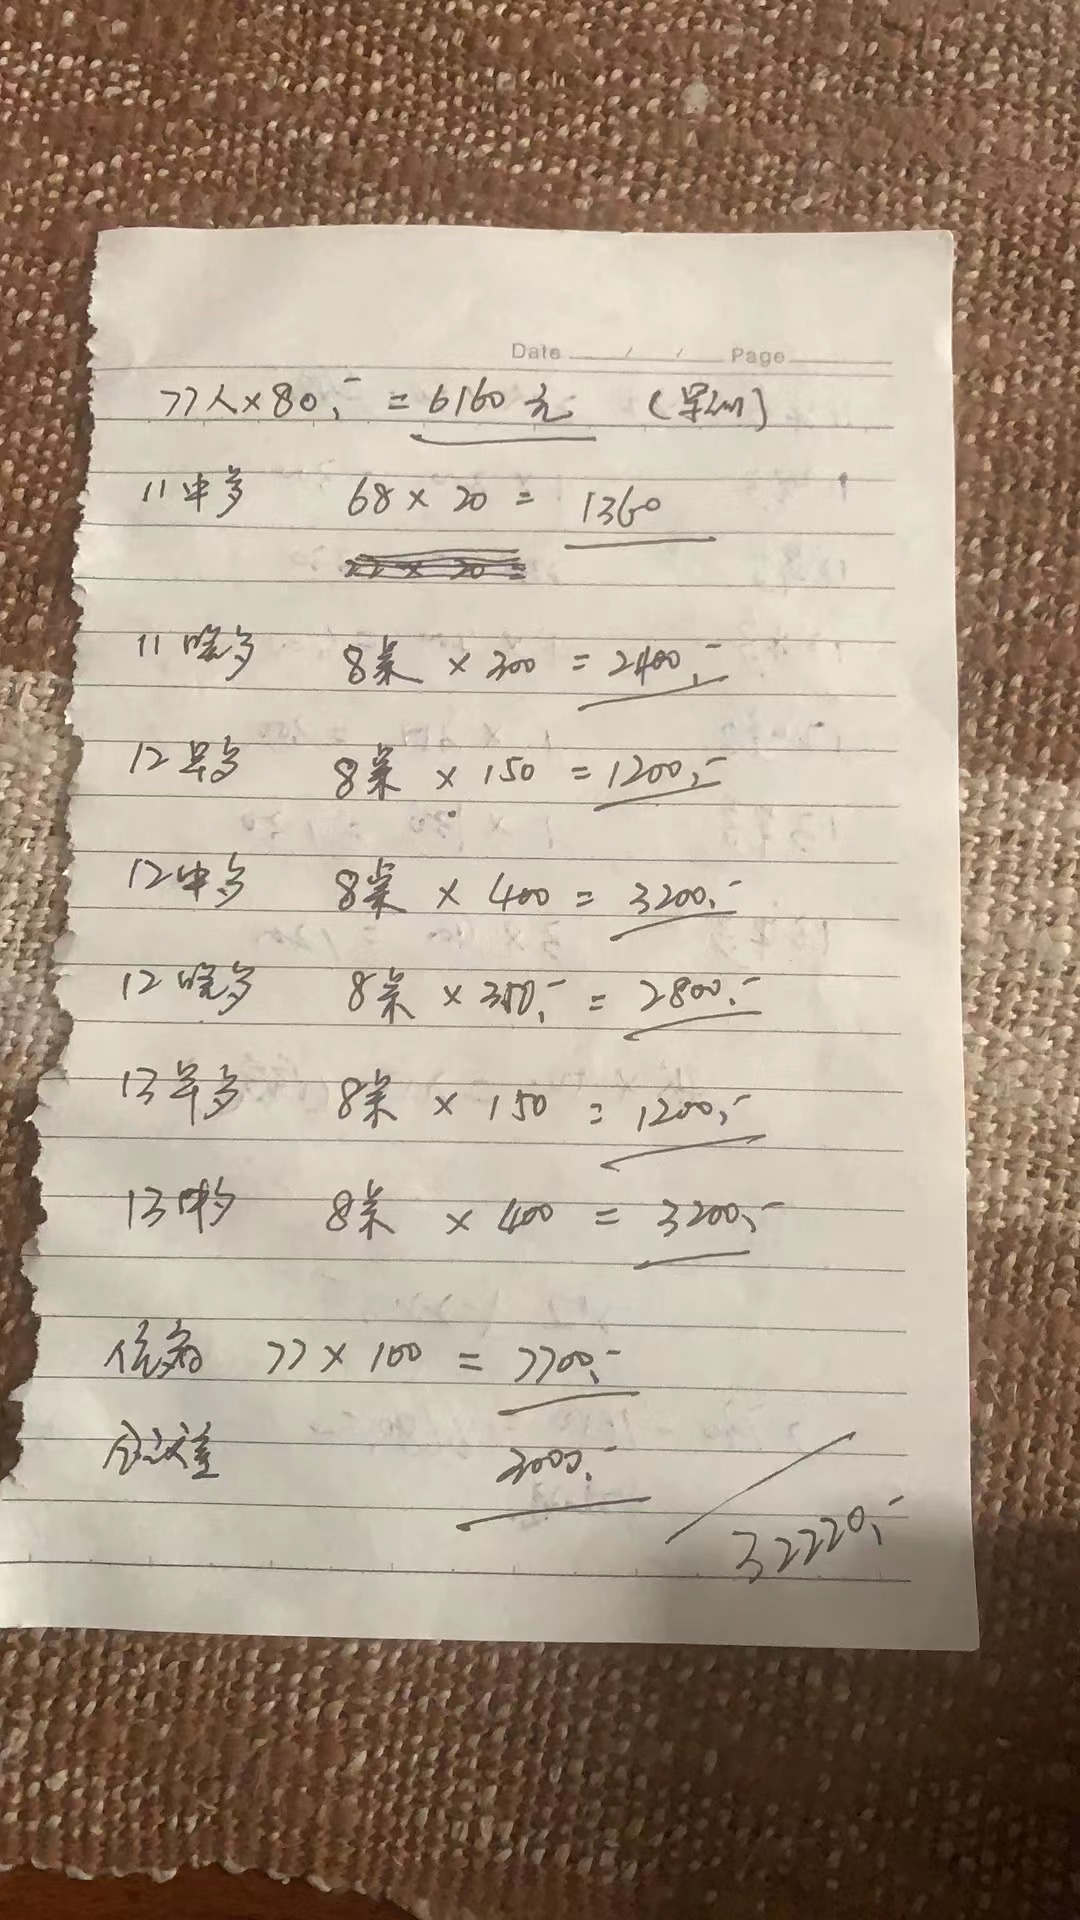 Date / / Page
77人×80,- = 6160元
11中 68 × 20 = 1360
22 × 20 =
11晚 8桌 × 300 = 2400,-
12早 8桌 × 150 = 1200,-
12中 8桌 × 400 = 3200,-
12晚 8桌 × 350,- = 2800,-
13早 8桌 × 150 = 1200,-
13中 8桌 × 400 = 3200,-
住宿 77 × 100 = 7700,-
会议室 3000,-
32220,-